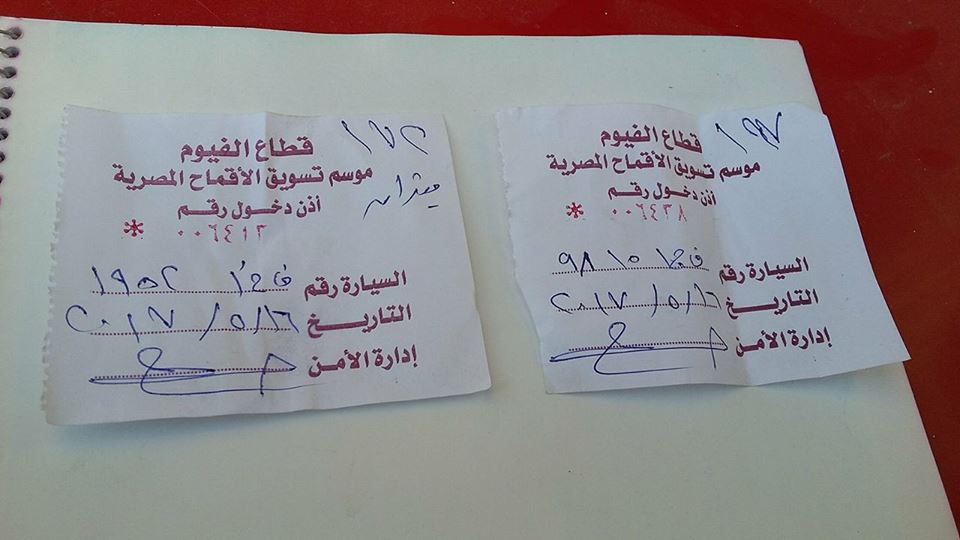 ١٧٢
قطاع الفيوم
موسم تسويق الأقماح المصرية
أذن دخول رقم
* ٠٠٦٤١٣
السيارة رقم ١٩٥٢
التاريخ ٢٠١٧/٥/١٦
إدارة الأمن
١٩٧
قطاع الفيوم
موسم تسويق الأقماح المصرية
أذن دخول رقم
* ٠٠٦٤٣٨
السيارة رقم ٩٨١٥
التاريخ ٢٠١٧/٥/١٦
إدارة الأمن